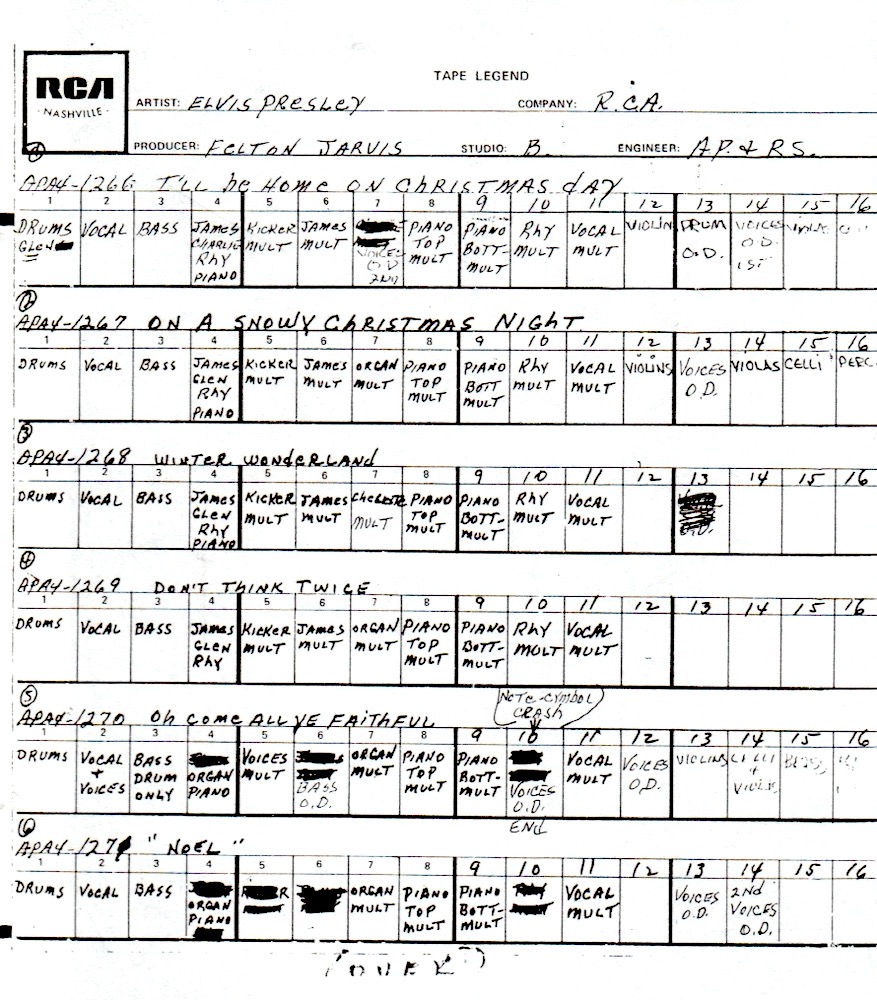 RCA
NASHVILLE
TAPE LEGEND
ARTIST: ELVIS PRESLEY COMPANY: R.C.A.
PRODUCER: FELTON JARVIS STUDIO: B. ENGINEER: AP. & RS.
1
APA4-1266 I'LL bE HOME ON CHRISTMAS dAY
1 2 3 4 5 6 7 8 9 10 11 12 13 14 15 16
DRUMS VOCAL BASS JAMES KICKER JAMES PIANO PIANO RhY VOCAL VIOLIN DRUM VOICES
GLEN CHARLIE MULT MULT TOP BOTT- MULT MULT O.D. O.D.
RhY VOICES MULT MULT 1ST
PIANO O.D.
2ND
2
APA4-1267 ON A SNOWY CHRISTMAS NIGHT
1 2 3 4 5 6 7 8 9 10 11 12 13 14 15 16
DRUMS VOCAL BASS JAMES KICKER JAMES ORGAN PIANO PIANO RhY VOCAL VIOLINS VOICES VIOLAS CELLI PERC.
GLEN MULT MULT MULT TOP BOTT MULT MULT O.D.
RhY MULT MULT
PIANO
3
APA4-1268 WINTER WONDERLAND
1 2 3 4 5 6 7 8 9 10 11 12 13 14 15 16
DRUMS VOCAL BASS JAMES KICKER JAMES CHELESTE PIANO PIANO RhY VOCAL
GLEN MULT MULT MULT TOP BOTT- MULT MULT
RhY MULT MULT O.D.
PIANO
4
APA4-1269 DON'T THINK TWICE
1 2 3 4 5 6 7 8 9 10 11 12 13 14 15 16
DRUMS VOCAL BASS JAMES KICKER JAMES ORGAN PIANO PIANO RhY VOCAL
GLEN MULT MULT MULT TOP BOTT- MULT MULT
RhY MULT MULT
5
NOTE-CYMBOL
CRASH
APA4-1270 Oh COME ALL YE FAITHFUL
1 2 3 4 5 6 7 8 9 10 11 12 13 14 15 16
DRUMS VOCAL BASS VOICES ORGAN PIANO PIANO VOCAL VOICES VIOLINS CELLI
+ DRUM ORGAN MULT MULT TOP BOTT- MULT O.D. +
VOICES ONLY PIANO BASS MULT MULT VOICES
O.D. O.D.
END
6
APA4-1271 "NOEL"
1 2 3 4 5 6 7 8 9 10 11 12 13 14 15 16
DRUMS VOCAL BASS ORGAN PIANO PIANO VOCAL VOICES 2Nd
ORGAN MULT TOP BOTT- MULT O.D. VOICES
PIANO MULT MULT O.D.
(OVER)